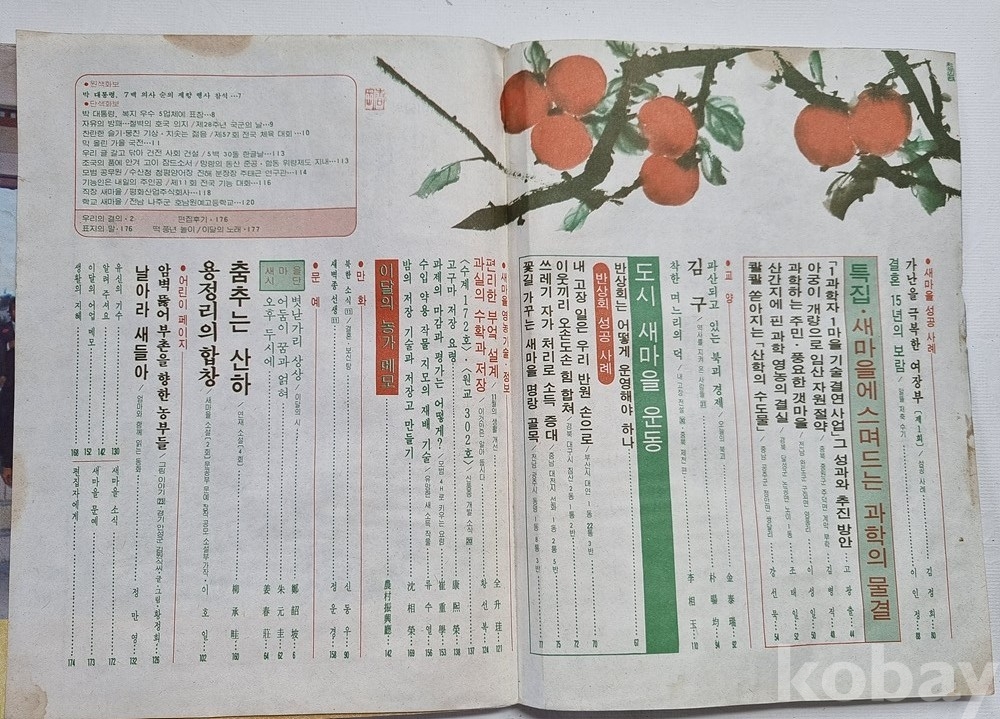 ● 새마을 성공 사례
가난을 극복한 여장부 (제1회) / 성공 사례 김 정 희 80
결혼 15년의 보람 / 알뜰 저축 수기 이 인 정 88
특집·새마을에 스며드는 과학의 물결
「1과학자 1마을 기술결연사업」 그 성과와 추진 방안 고 광 출 44
아궁이 개량으로 임산 자원 절약 김 행 직 48
과학하는 주민·풍요한 갯마을 이 성 일 50
산간지에 핀 과학 영농의 결실 조 태 일 52
콸콸 쏟아지는 「산학의 수도물」 강 선 묵 54
● 교 양
파산되고 있는 북괴 경제 / 오늘의 북괴 金 泰 瑞 92
김 구 / 역사를 지켜 온 사람들 朴 暘 均 94
착한 며느리의 덕 / 내 고장 전설 李 相 玉 110
도시 새마을 운동
반상회는 어떻게 운영해야 하나 67
반상회 성공 사례
내 고장 일은 우리 반원 손으로 70
이웃끼리 오손도손 힘 합쳐 72
쓰레기 자가 처리로 소득 증대 75
꽃길 가꾸는 새마을 명랑 골목 77
● 원색화보
박 대통령, 7백 의사 순의 제향 행사 참석…7
● 단색화보
박 대통령, 복지 우수 5업체에 표창…8
자유의 방패…철벽의 호국 의지 / 제28주년 국군의 날…9
찬란한 슬기·뭉친 기상·치솟는 젊음 / 제57회 전국 체육 대회…10
막 올린 가을 국전…11
우리 글 갈고 닦아 건전 사회 건설 / 5백 30돌 한글날…113
조국의 품에 안겨 고이 잠드소서 / 망향의 동산 준공·합동 위령제도 지내…113
모범 공무원 / 수산청 청평양어장 진해 분장장 주태근 연구관…114
기능인은 내일의 주인공 / 제11회 전국 기능 대회…116
직장 새마을 / 평화산업주식회사…118
학교 새마을 / 전남 나주군 호남원예고등학교…120
우리의 결의·2 편집후기·176
표지의 말·176 떡 풍년 놀이 / 이달의 노래·177
● 새마을 영농기술·정보
편리한 부엌 설계 / 11월의 생활 개선 全 升 珪 121
과실의 수확과 저장 / 이것만은 알아 둡시다 황 선 복 124
〈수계 172호·〈원교 302호〉 / 신품종 개발 소식 137
고구마 저장 요령 康 熙 榮 138
과제의 마감과 평가는 어떻게? / 모범 4H로 키우는 요람 崔 重 學 153
수입 약용 작물 지모의 재배 기술 / 유망한 새 소득 작물 류 수 열 156
밤의 저장 기술과 저장고 만들기 沈 相 榮 169
이달의 농가 메모 農村振興廳 142
● 만 화
북한 소식 신 동 우 90
새벽종 선생 정 운 경 158
● 문 예
새마을 시단
볏난가리 상상 / 이달의 시 鄭 韶 坡 6
어둠이 꿈과 얽혀 朱 元 圭 62
오후 두시에 姜 春 莊 64
춤추는 산하 / 연재 소설 〔4회〕 柳 承 畦 160
용정리의 합창 이 호 일 102
● 어린이 페이지
암벽 뚫어 부촌을 향한 농부들 황 정 희 126
날아라 새들아 / 엄마와 함께 읽는 동화 정 만 영 132
유신의 기수 130 새마을 소식 172
알려 주세요 142 새마을 문예 173
이달의 어업 메모 152 편집자에게 174
생활의 지혜 168
kobay